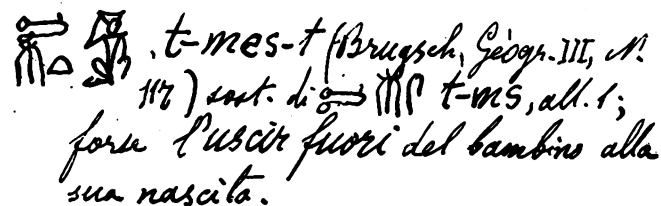 . t-mes-t (Brugsch, Géogr. III, N.
117) sost. di t-ms, all. 1;
forse l'uscir fuori del bambino alla
sua nascita.